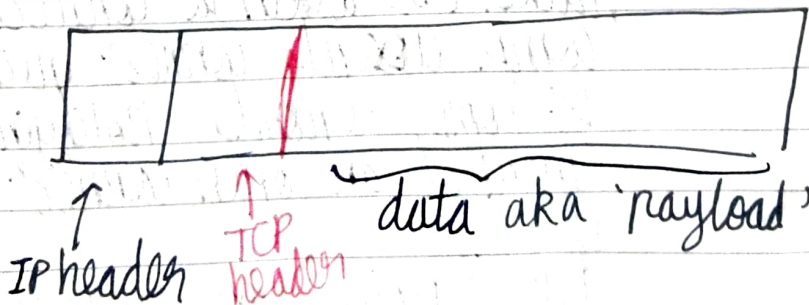 IP header
TCP
header
data aka 'payload'